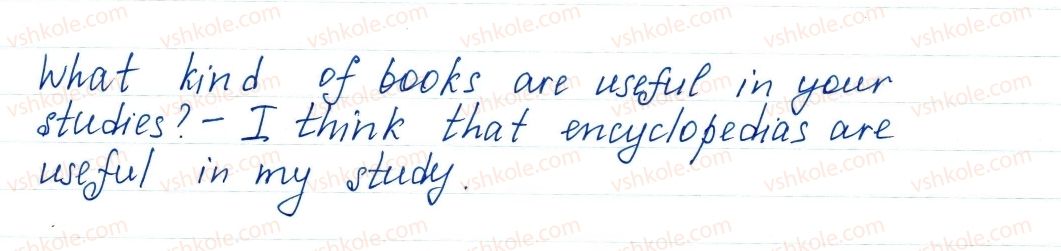 What kind of books are useful in your
studies? - I think that encyclopedias are
useful in my study.